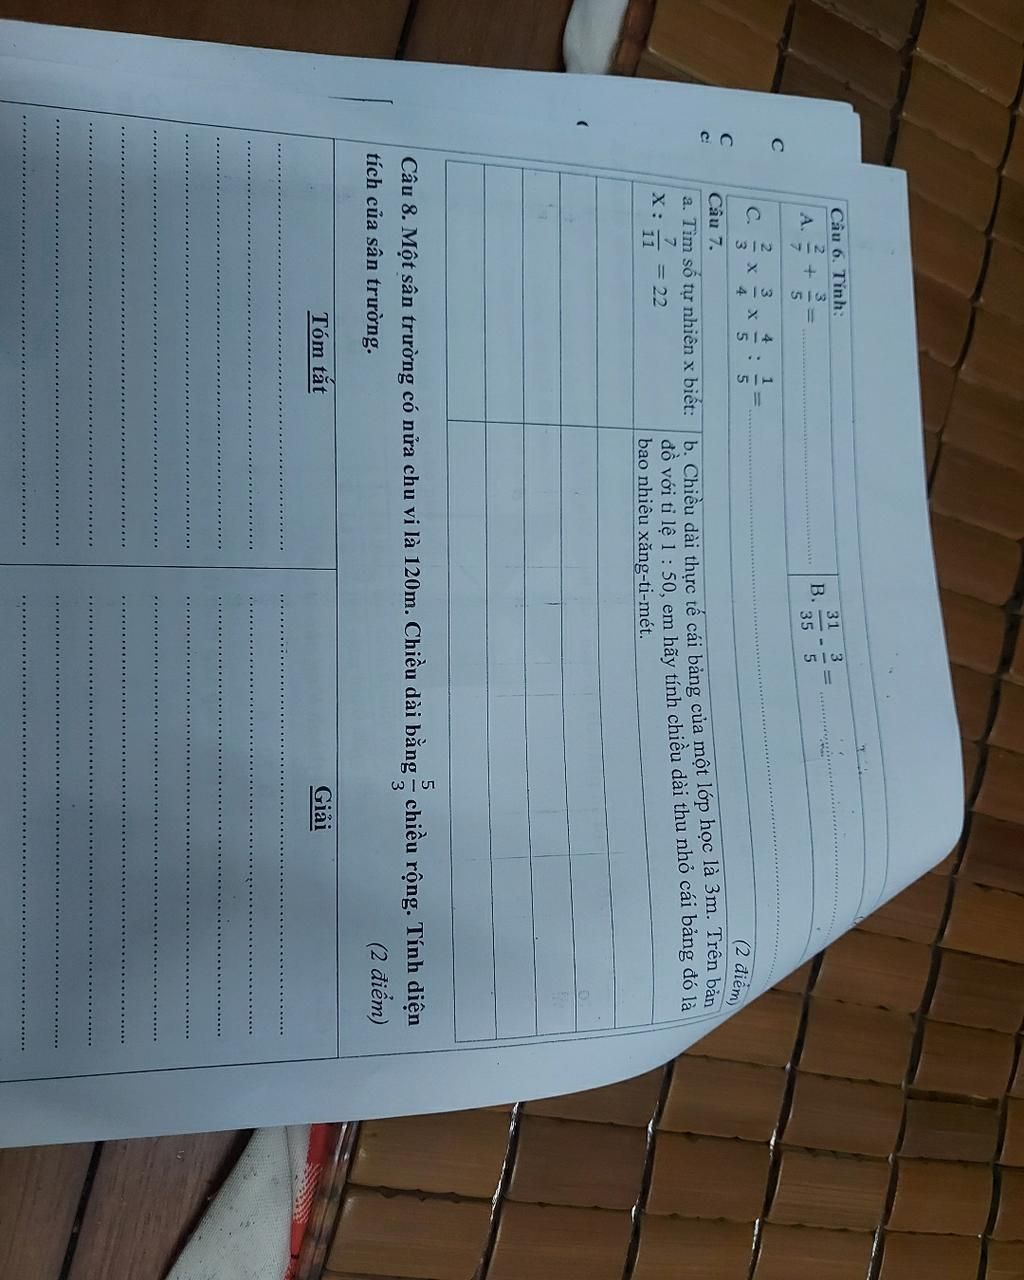 Câu 6. Tính:
A. 2/7 + 3/5 = ........ B. 31/35 - 3/5 = ........
C. 2/3 x 3/4 x 4/5 : 1/5 = ........
Câu 7. (2 điểm)
a. Tìm số tự nhiên x biết:
X : 7/11 = 22
b. Chiều dài thực tế cái bảng của một lớp học là 3m. Trên bản
đồ với tỉ lệ 1 : 50, em hãy tính chiều dài thu nhỏ cái bảng đó là
bao nhiêu xăng-ti-mét.
Câu 8. Một sân trường có nửa chu vi là 120m. Chiều dài bằng 5/3 chiều rộng. Tính diện
tích của sân trường. (2 điểm)
Tóm tắt Giải